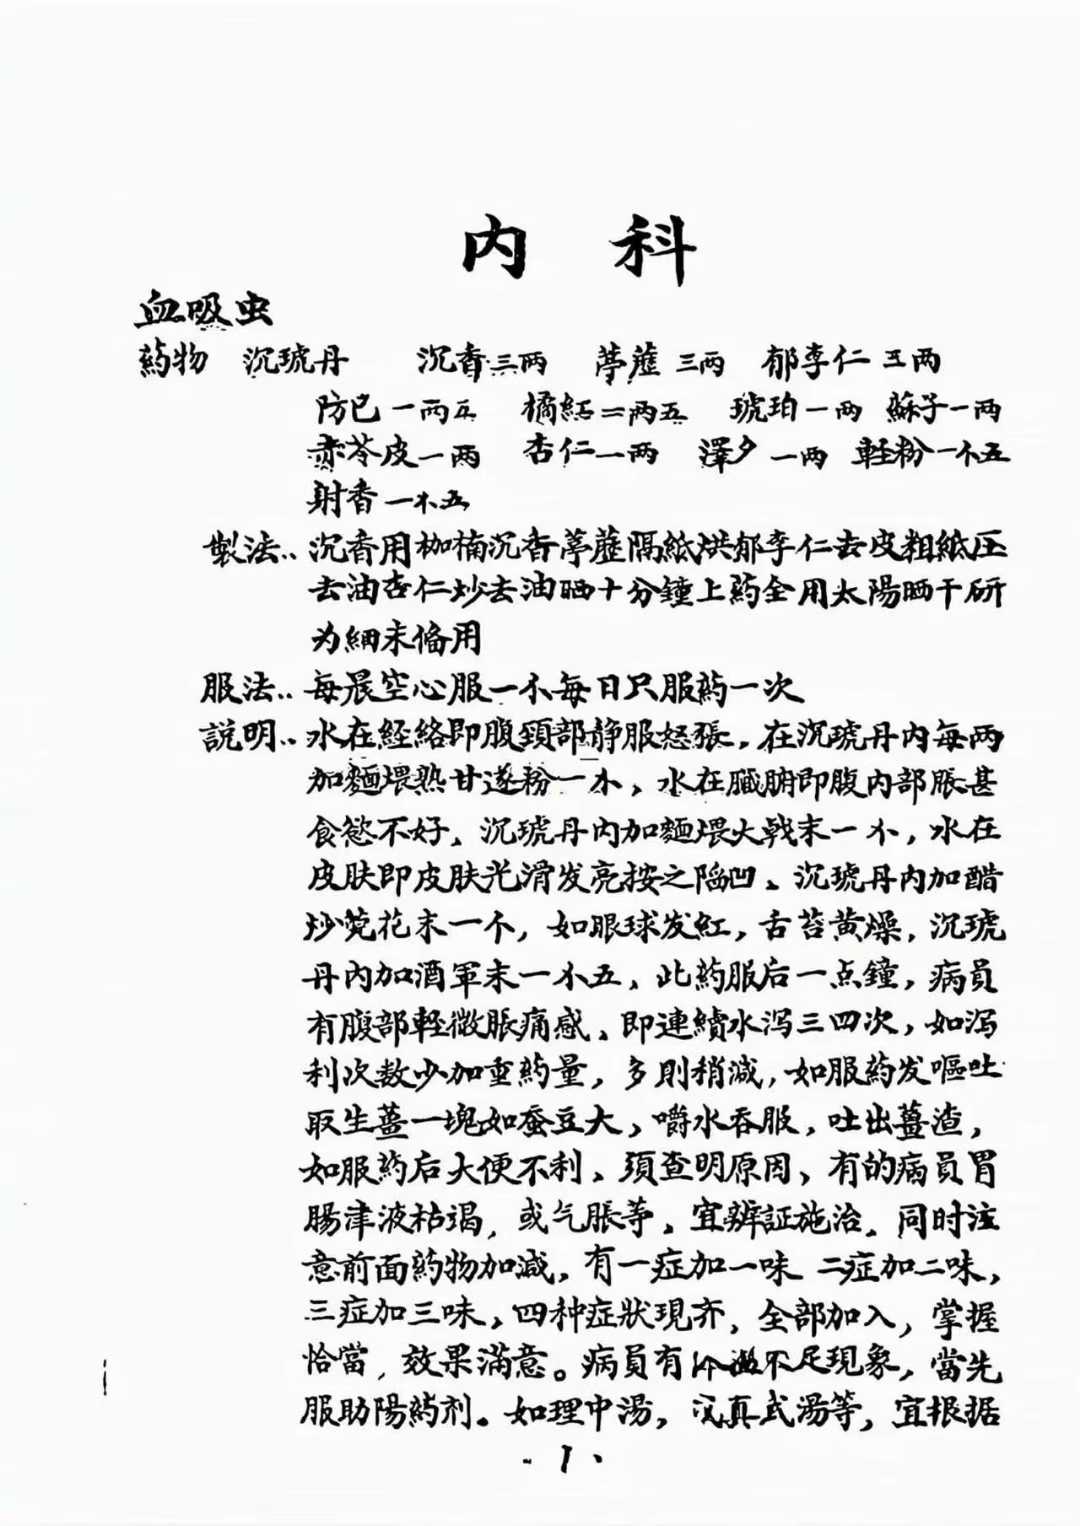 内 科
血吸虫
药物 沉琥丹 沉香三两 葶藶三两 郁李仁五两
防已一两五 橘紅二两五 琥珀一两 蘇子一两
赤苓皮一两 杏仁一两 澤夕一两 軽粉一个五
射香一个五
製法.. 沉香用枷楠沉香葶藶隔紙烘郁李仁去皮粗紙压
去油杏仁炒去油晒十分鐘上药全用太陽晒干研
为細末俻用
服法.. 每晨空心服一个每日只服药一次
説明.. 水在経絡即腹頸部静服怒張，在沉琥丹内每两
加麵煨熟甘遂粉一个，水在臓腑即腹内部脹甚
食慾不好、沉琥丹内加麵煨大戟末一个，水在
皮肤即皮肤光滑发亮按之陷凹、沉琥丹内加醋
炒芫花末一个，如眼球发紅，舌苔黄燥，沉琥
丹内加酒軍末一个五，此药服后一点鐘，病員
有腹部軽微脹痛感、即連續水泻三四次，如泻
利次数少加重药量，多則稍減，如服药发嘔吐
取生薑一塊如蚕豆大，嚼水吞服，吐出薑渣，
如服药后大便不利、須查明原因，有的病員胃
腸津液枯竭，或气脹等、宜辨証施治．同时注
意前面药物加減，有一症加一味 二症加二味，
三症加三味，四种症狀現齐，全部加入，掌握
恰當，效果滿意。病員有 不足現象，當先
服助陽药剂。如理中湯， 真武湯等，宜根据
- 1、